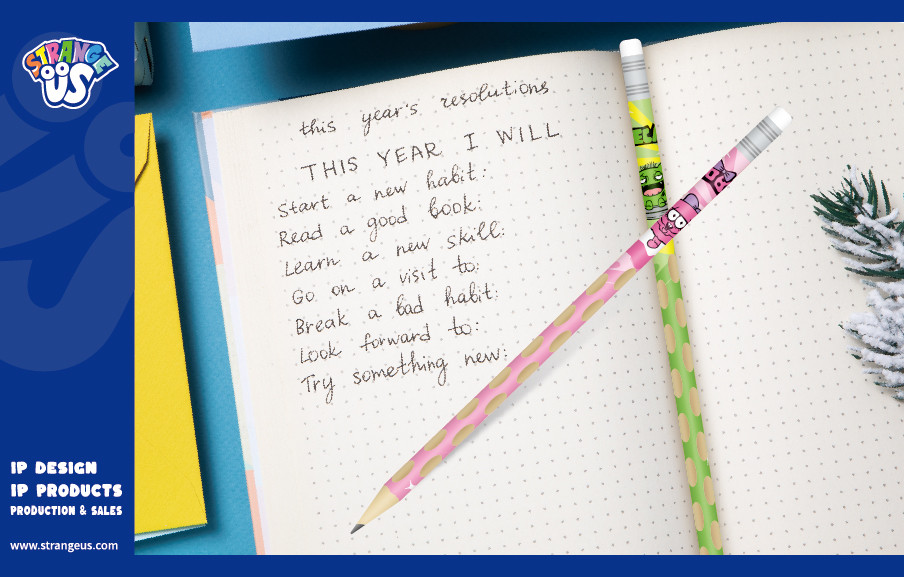 STRANGE
US
this year's resolutions
THIS YEAR I WILL
Start a new habit:
Read a good book:
Learn a new skill:
Go on a visit to:
Break a bad habit:
Look forward to:
Try something new:
IP DESIGN
IP PRODUCTS
PRODUCTION & SALES
www.strangeus.com